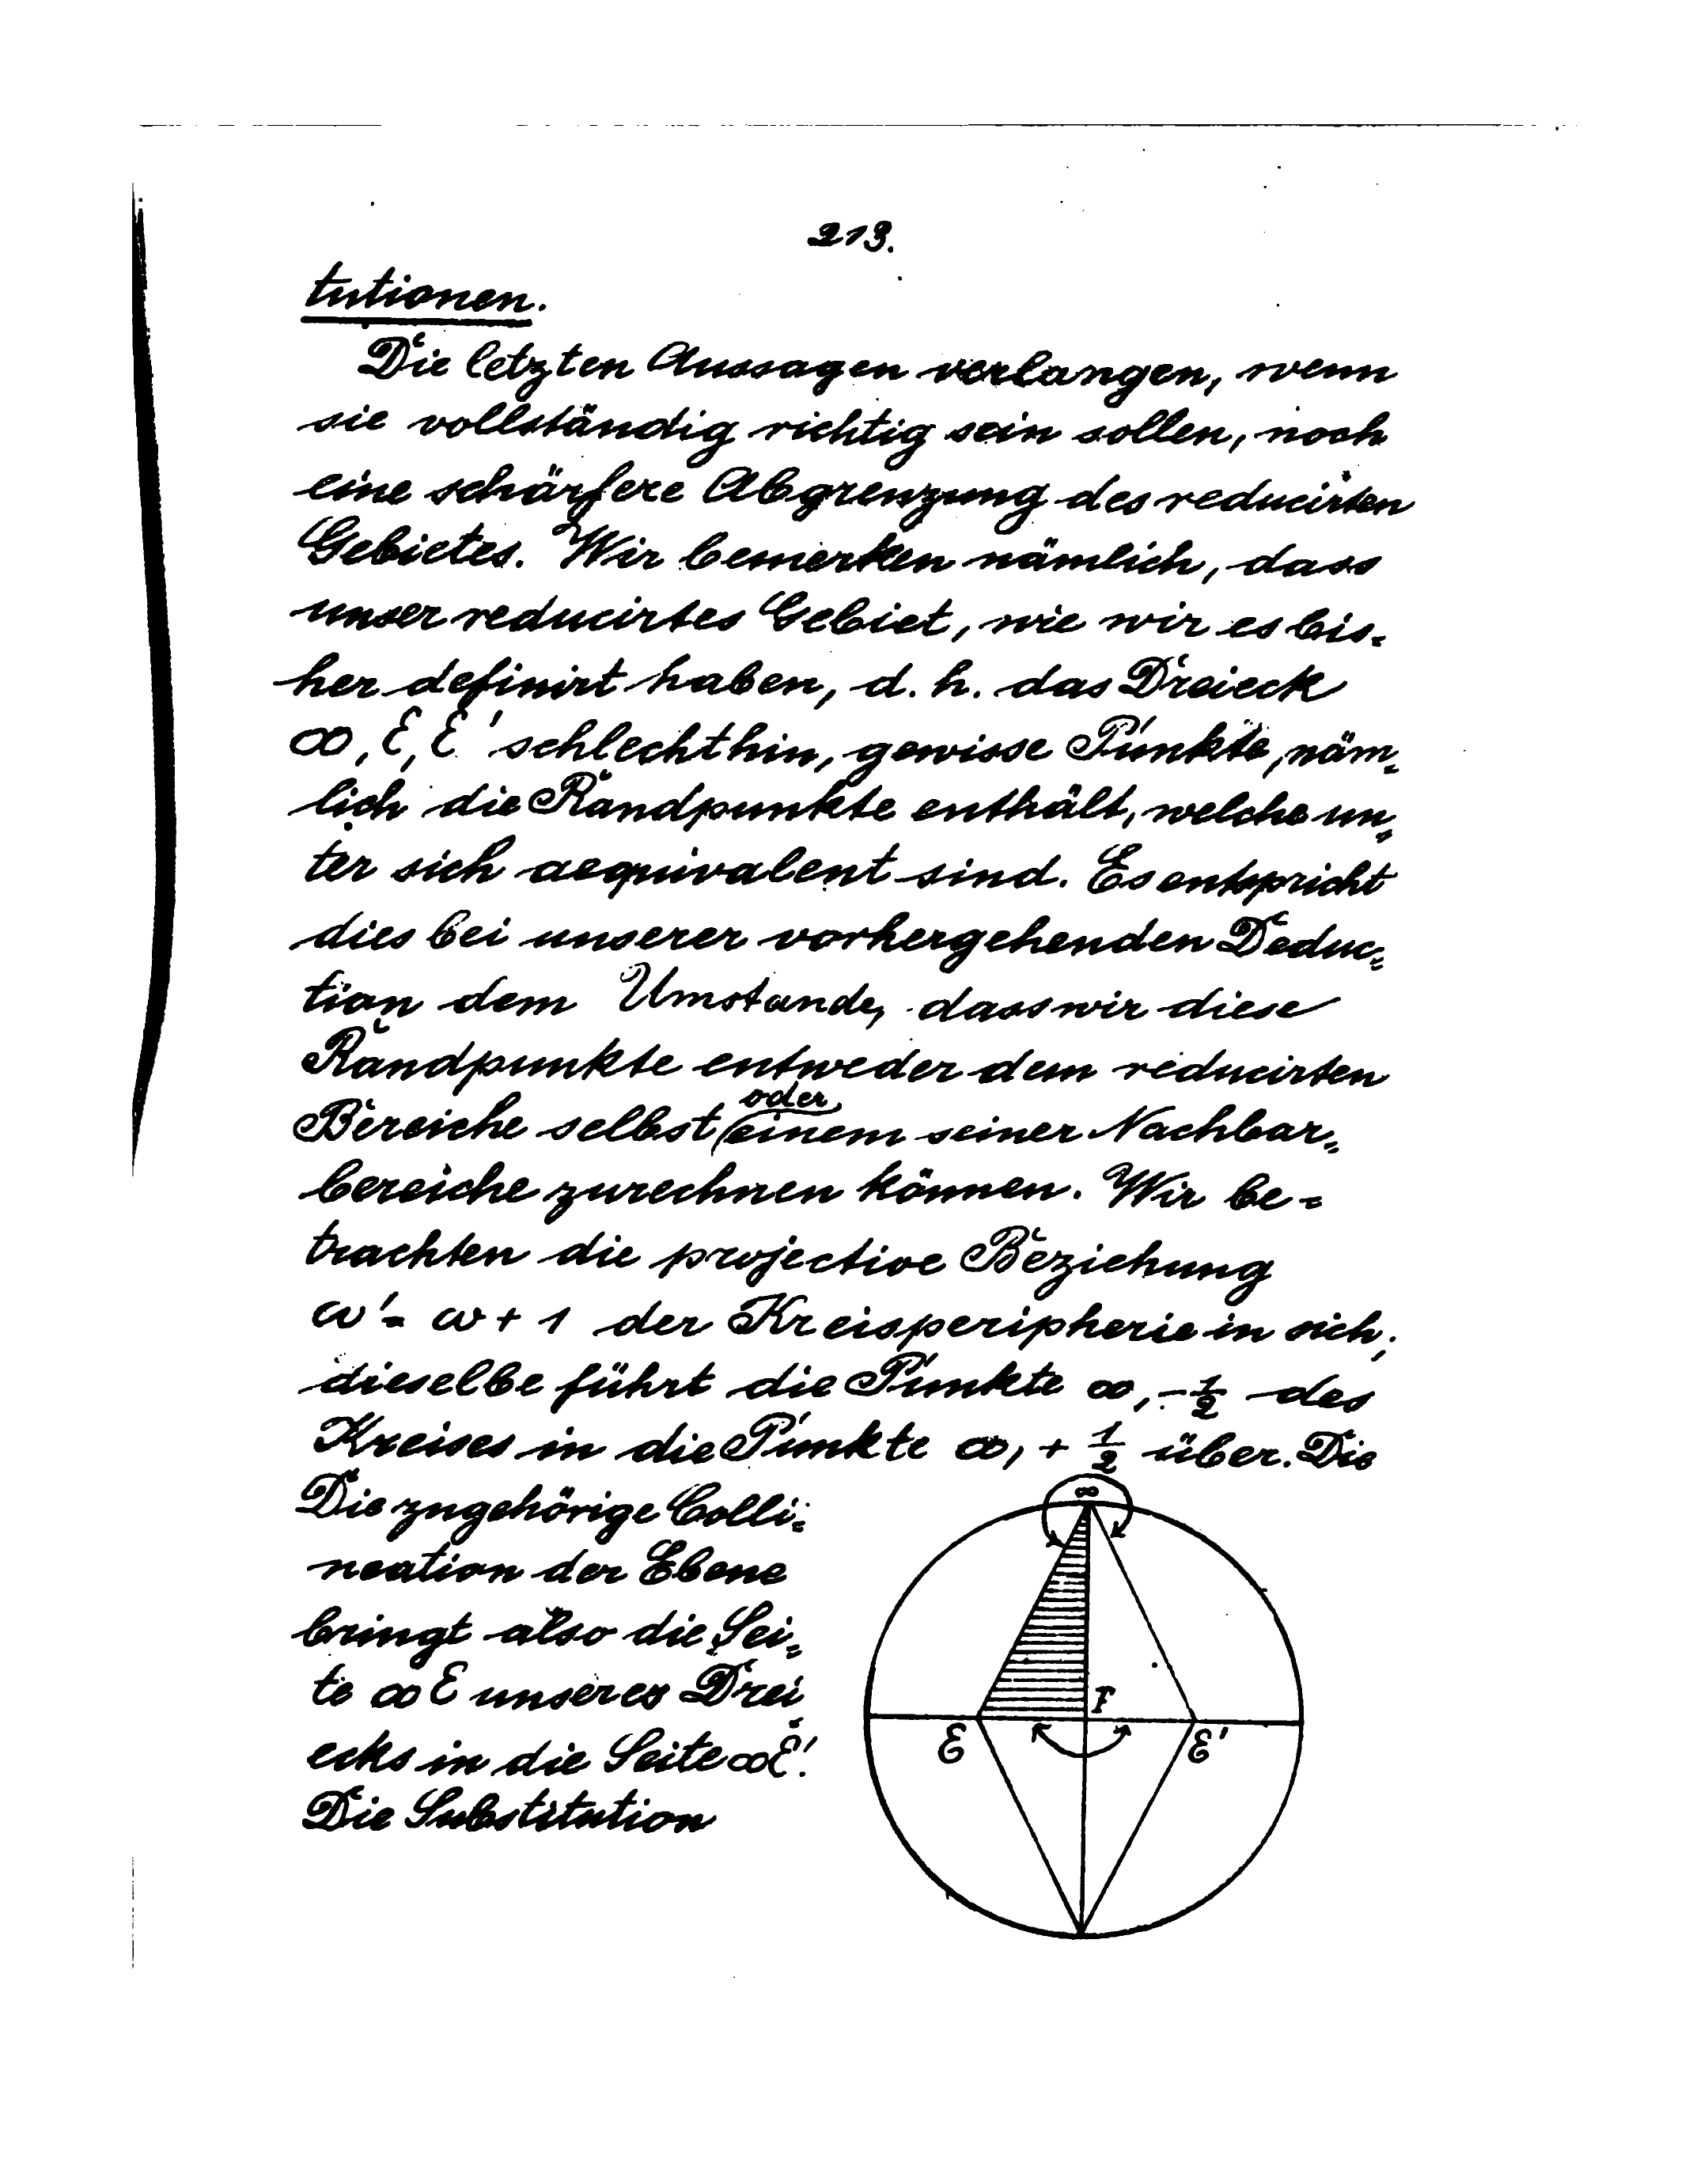 213.
tutionen.
Die letzten Aussagen verlangen, wenn
sie vollständig richtig sein sollen, noch
eine schärfere Abgrenzung des reducirten
Gebietes. Wir bemerken nämlich, dass
unser reducirtes Gebiet, wie wir es bis-
her definirt haben, d. h. das Dreieck
∞, ℰ, ℰ' schlechthin, gewisse Punkte, näm-
lich die Randpunkte enthält, welche un-
ter sich aequivalent sind. Es entspricht
dies bei unserer vorhergehenden Deduc-
tion dem Umstande, dass wir diese
Randpunkte entweder dem reducirten
Bereiche selbst oder einem seiner Nachbar-
bereiche zurechnen können. Wir be-
trachten die projective Beziehung
ω' = ω + 1 der Kreisperipherie in sich;
dieselbe führt die Punkte ∞, -1/2 des
Kreises in die Punkte ∞, + 1/2 über. Die
Die zugehörige Colli-
neation der Ebene
bringt also die Sei-
te ∞ ℰ unseres Drei-
ecks in die Seite ∞ℰ'.
Die Substitution
∞
F
ℰ
ℰ'